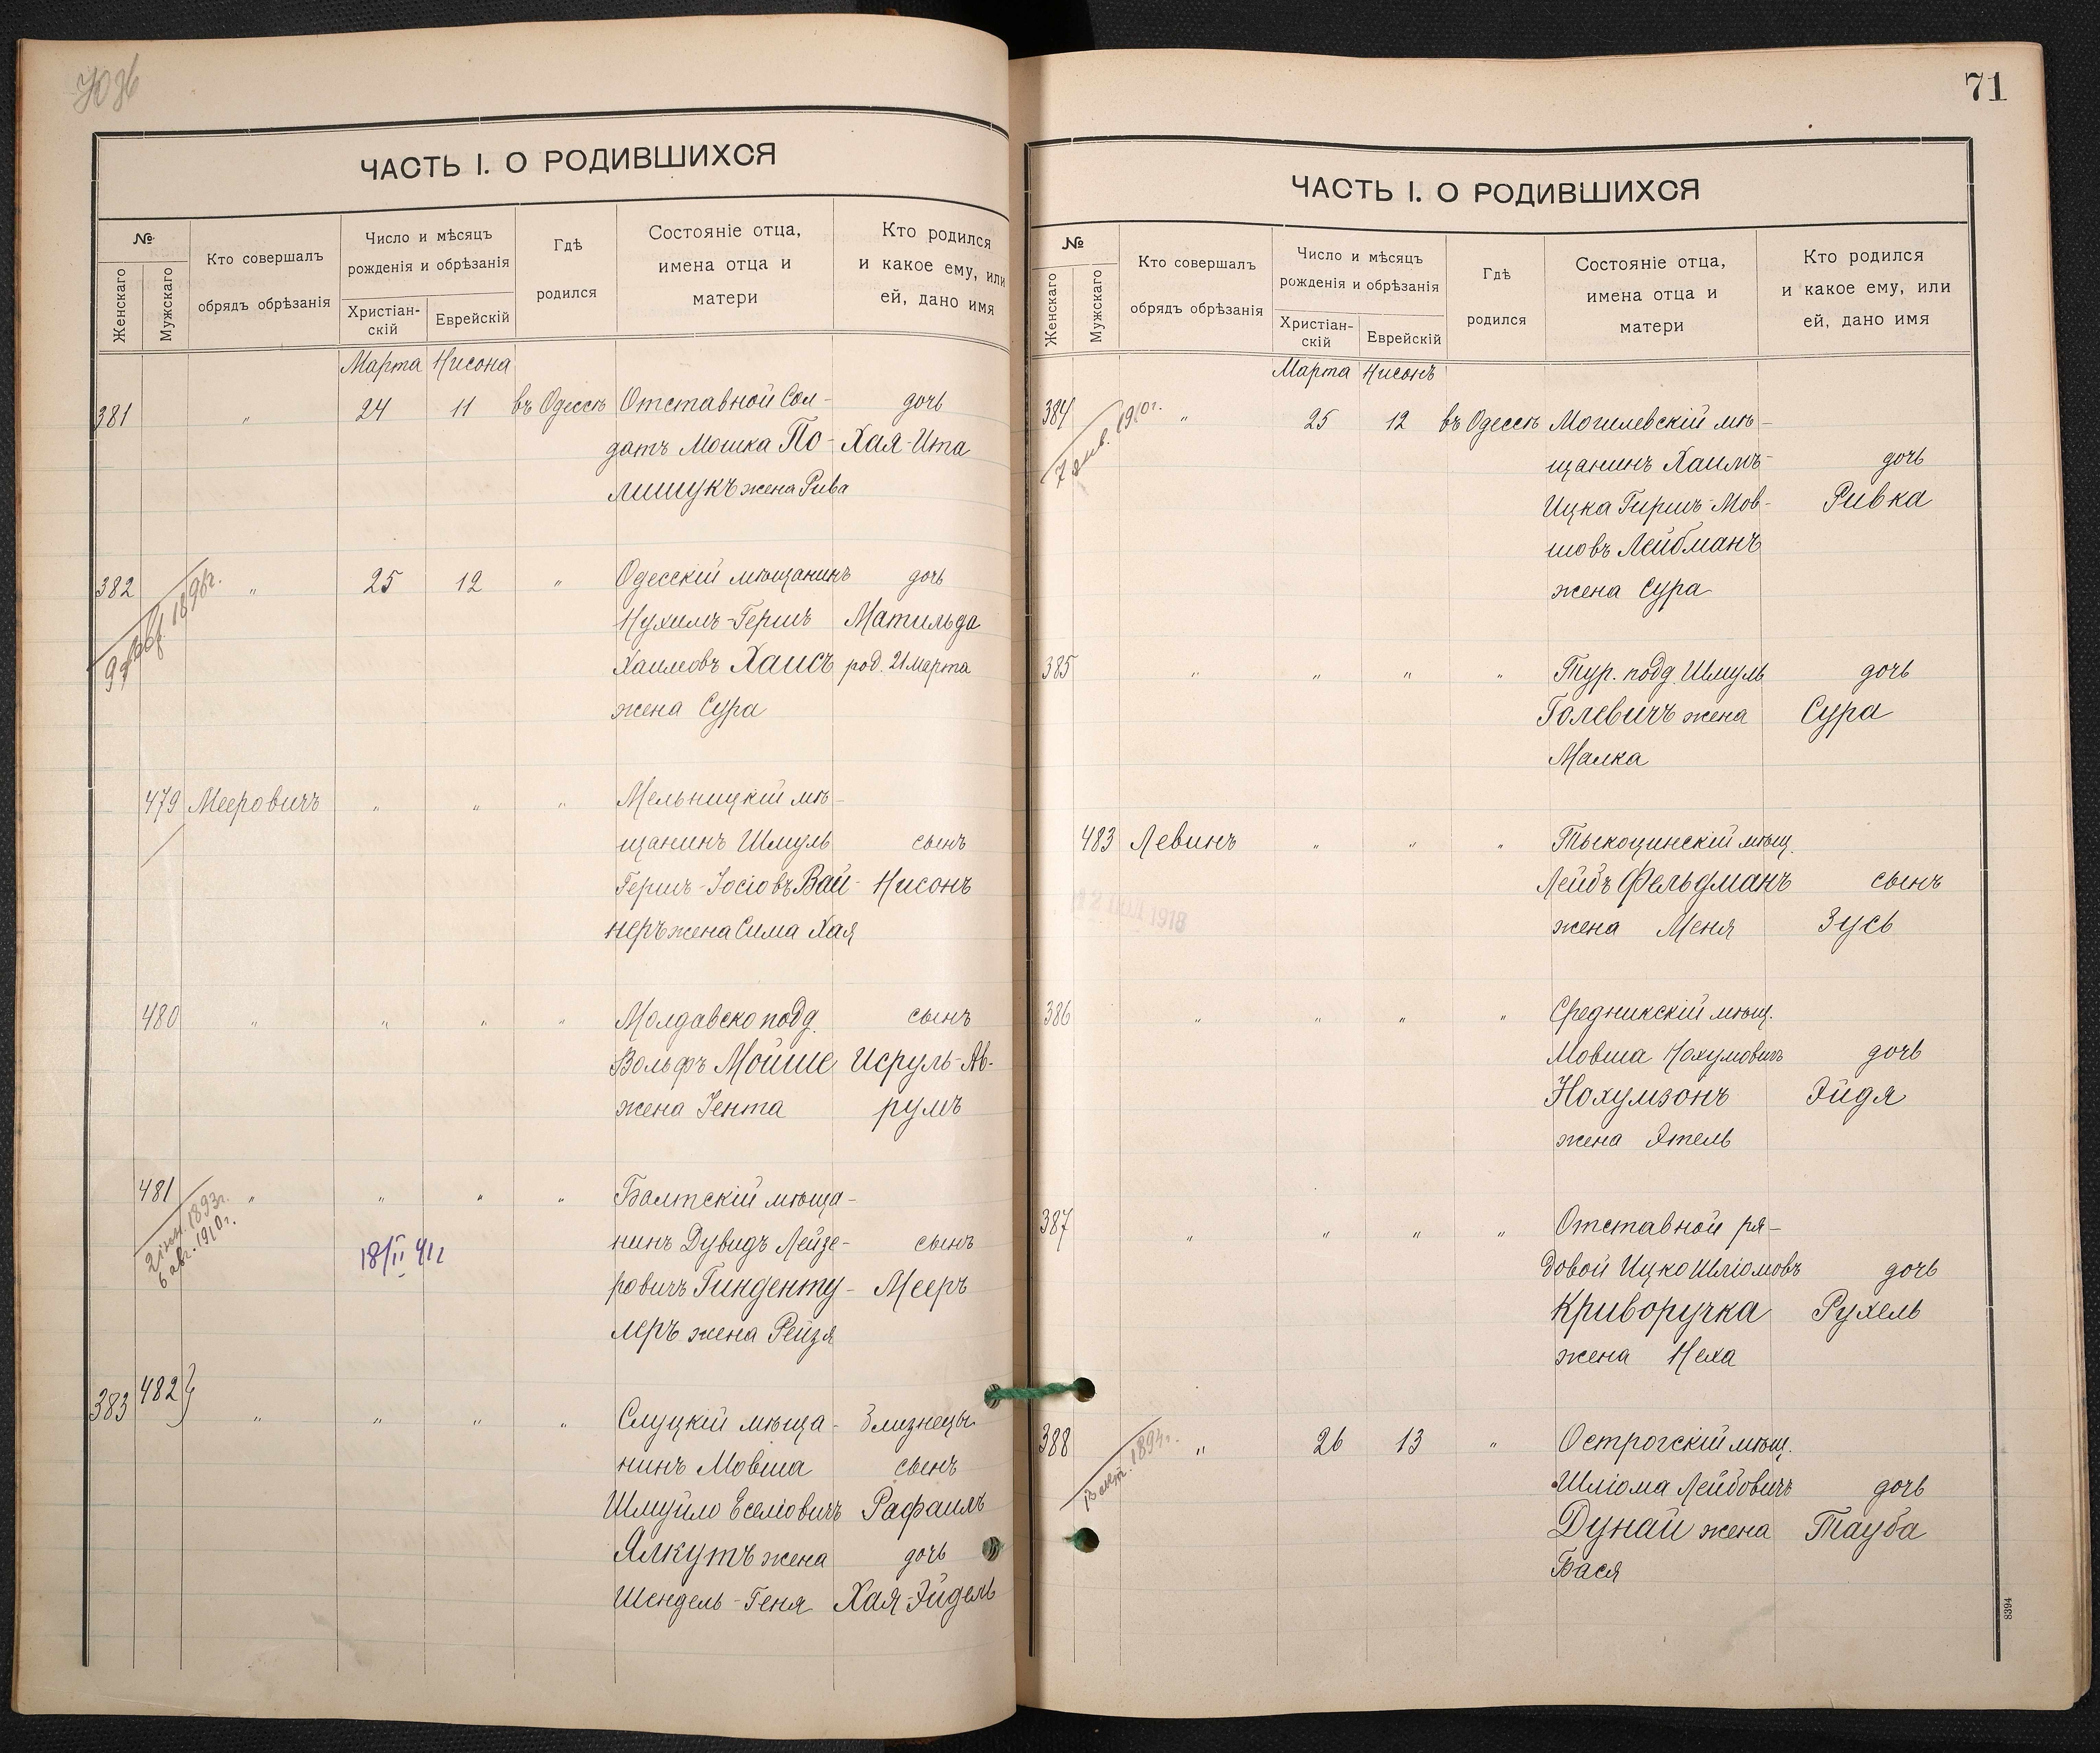 70 об
ЧАСТЬ I. О РОДИВШИХСЯ
№
Женскаго
Мужскаго
Кто совершалъ
обрядъ обрѣзанія
Число и мѣсяцъ
рожденія и обрѣзанія
Христіан-
скій
Еврейскій
Гдѣ
родился
Состояніе отца,
имена отца и
матери
Кто родился
и какое ему, или
ей, дано имя
Марта Нисона
381 " 24 11 въ Одессѣ Отставной Сол- дочь
датъ Мошка По- Хая-Ита
лищукъ жена Рива
382 " 25 12 " Одесскій мѣщанинъ дочь
1898г.
Нухимъ-Гершъ Матильда
Хаимовъ Хаисъ род. 21 марта
жена Сура
479 Мееровичъ " " " Мельницкій мѣ-
щанинъ Шмуль сынъ
Гершъ-Іосіовъ Вай- Нисонъ
неръ жена Сима Хая
480 " " " " Молдавско подд. сынъ
Вольфъ Мойше Исруль-Ав-
жена Іента румъ
481 " " " " Балтскій мѣща-
1893г.
6 авг. 1910г.
18/II 41г
нинъ Дувидъ Лейзе- сынъ
ровичъ Гинденту- Мееръ
леръ жена Рейзя
383 482 } " " " " Слуцкій мѣща- Близнецы
нинъ Мовша сынъ
Шмуйло Еселіовичъ Рафаилъ
Ялкутъ жена дочь
Шендель-Геня Хая-Эйдель
71
ЧАСТЬ I. О РОДИВШИХСЯ
№
Женскаго
Мужскаго
Кто совершалъ
обрядъ обрѣзанія
Число и мѣсяцъ
рожденія и обрѣзанія
Христіан-
скій
Еврейскій
Гдѣ
родился
Состояніе отца,
имена отца и
матери
Кто родился
и какое ему, или
ей, дано имя
Марта Нисонъ
384 " 25 12 въ Одессѣ Могилевскій мѣ-
7 янв. 1910г.
щанинъ Хаимъ- дочь
Ицка Гиршъ-Мов- Ривка
шовъ Лейбманъ
жена Сура
385 " " " " Тур. подд. Шмуль дочь
Голевичъ жена Сура
Малка
483 Левинъ " " " Тыкоцинскій мѣщ.
Лейбъ Фельдманъ сынъ
жена Меня Зусь
1918
386 " " " " Средникскій мѣщ.
Мовша Нохумовичъ дочь
Нохумзонъ Эйдя
жена Этель
387 " " " " Отставной ря-
довой Ицко Шліомовъ дочь
Криворучка Рухель
жена Неха
388 " 26 13 " Острогскій мѣщ.
Шліома Лейбовичъ дочь
Дунай жена Тауба
Бася
8394